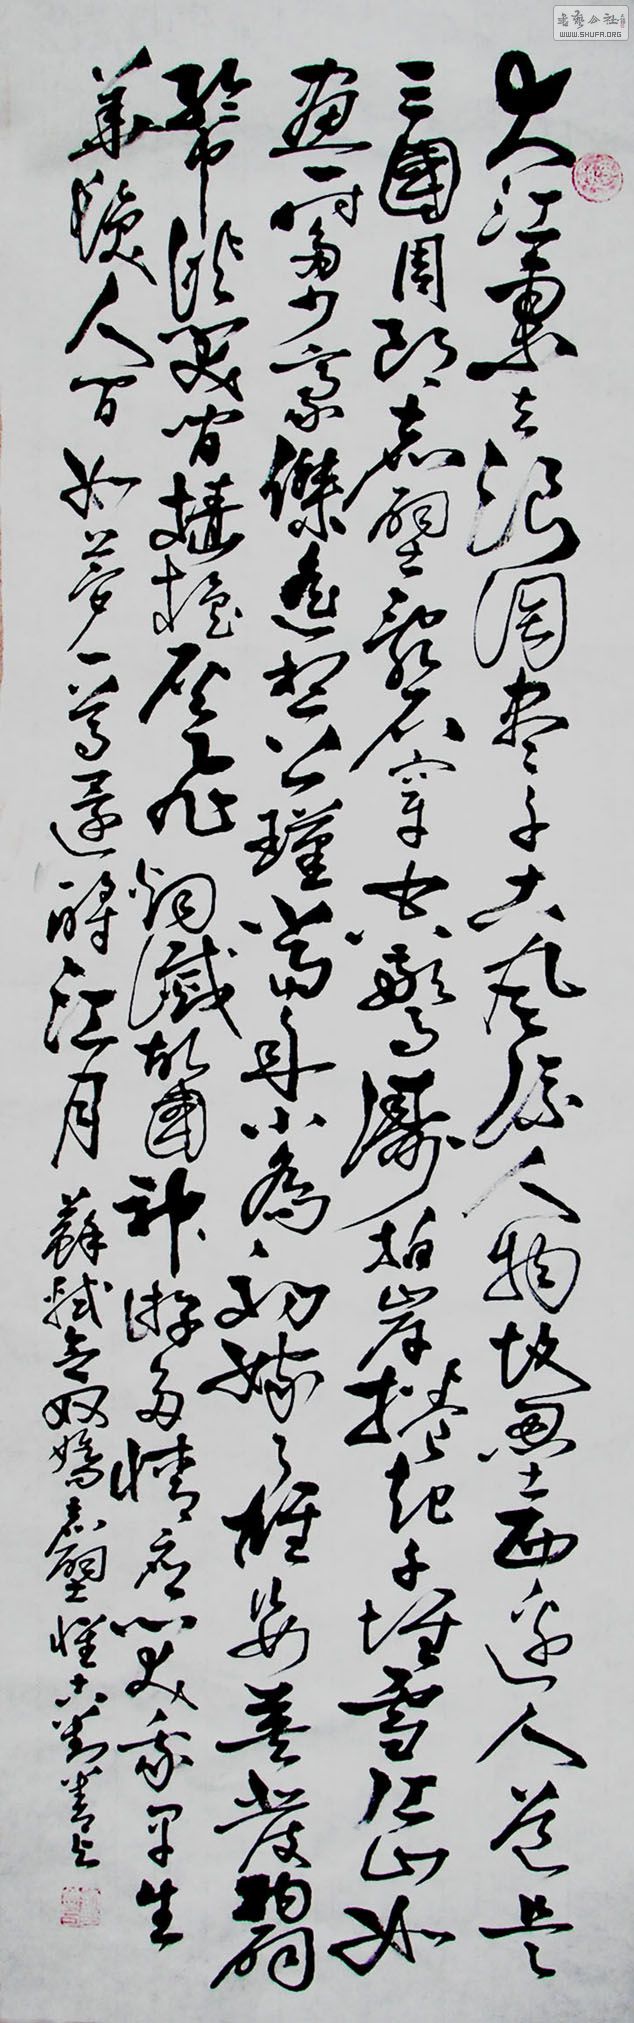 書藝公社
WWW.SHUFA.ORG
大江東去浪淘盡千古風流人物故壘西邊人道是
三國周郎赤壁亂石穿空驚濤拍岸捲起千堆雪江山如
畫一時多少豪傑遙想公瑾當年小喬初嫁了雄姿英發羽扇
綸巾談笑間檣櫓灰飛烟滅故國神游多情應笑我早生
華髮人間如夢一尊還酹江月 蘇軾念奴嬌赤壁懷古劉